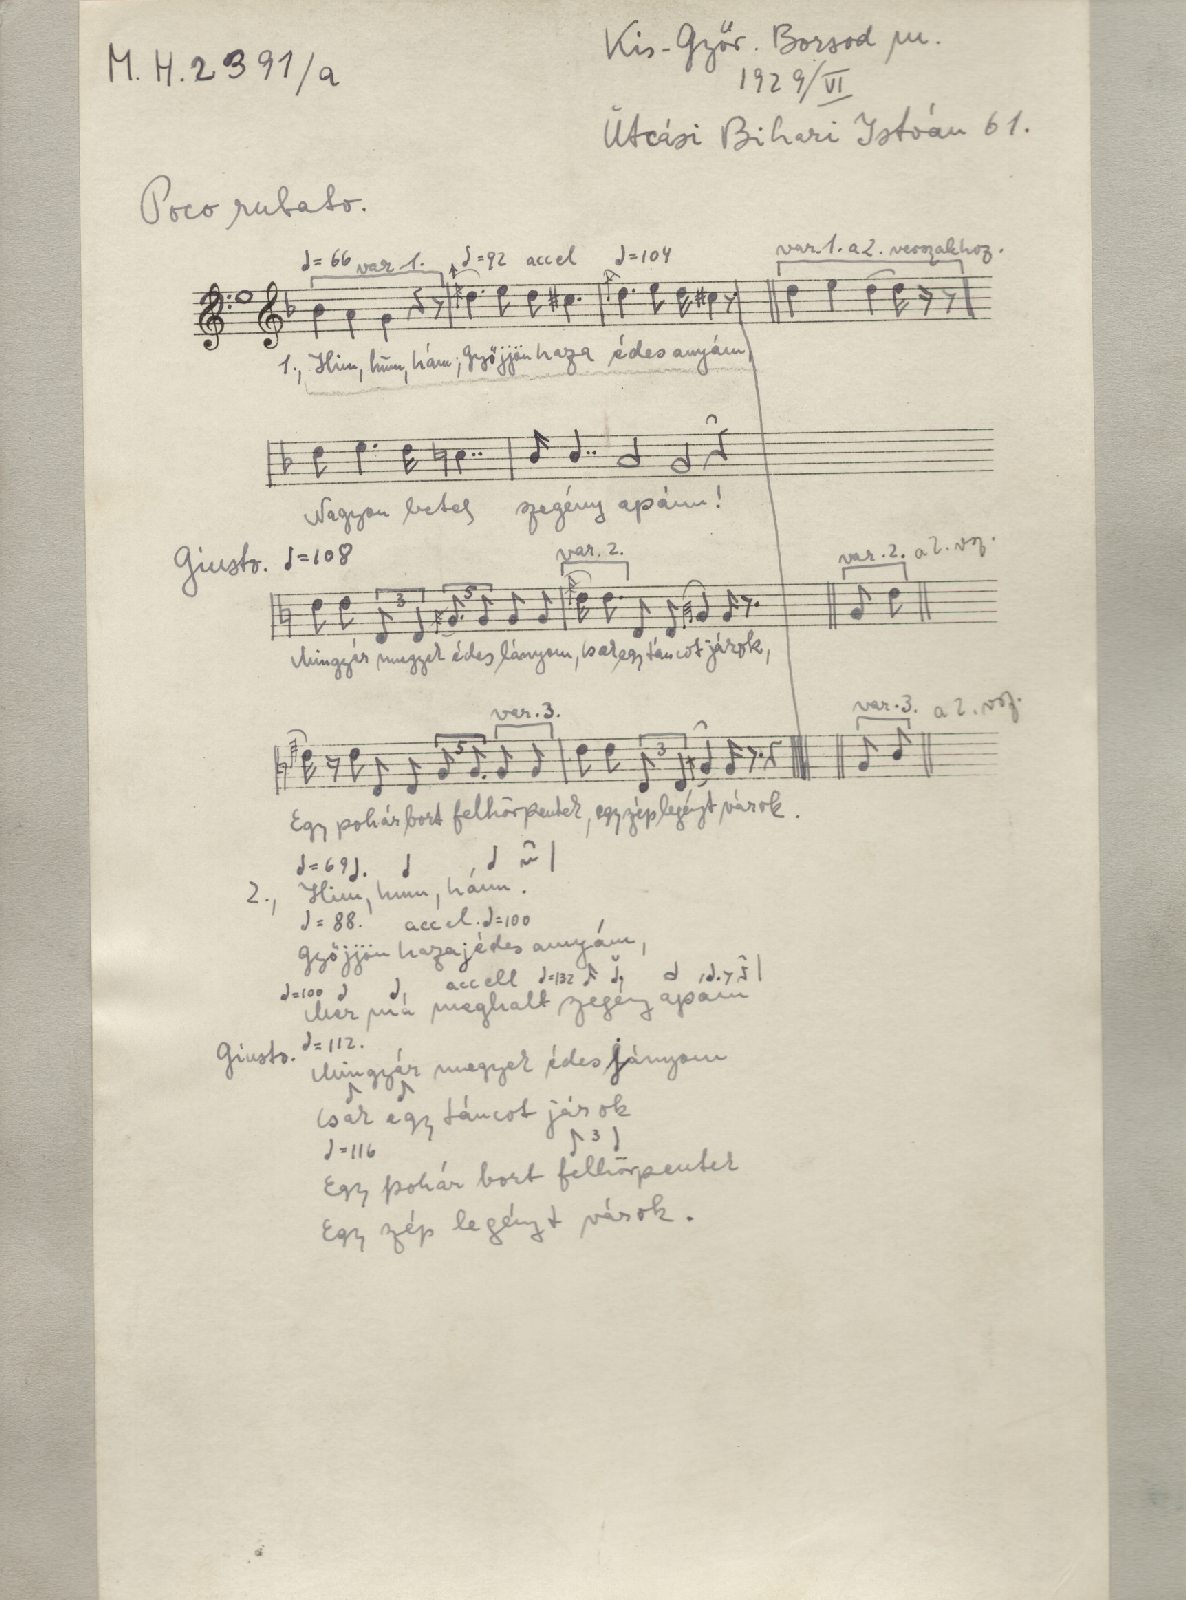 M. H. 2391/a
Kis-Győr. Borsod m.
1929/VI
Ütcási Bihari István 61.
Poco rubato.
♩=66 var 1. ♩=92 accel ♩=104 var. 1. a 2. versszakhoz.
1., Him, hüm, hám, gyöjjön haza édes anyám,
Nagyon beteg szegény apám!
Giusto. ♩=108 var. 2. var. 2. a 2. vsz.
3 5
Mingyár megyek édes lányom, csak egy táncot járok,
var. 3. var. 3. a 2. vsz.
5 3
Egy pohár bort felhörpentek, egy zép legényt várok.
♩=69
2., Him, hmm, hámm.
♩=88. accel. ♩=100
gyöjjön haza jédes annyám,
♩=100 accell ♩=132
Mer má meghalt szegény apám
Giusto. ♩=112.
Mingyár megyek édes jányom
csak egy táncot járok
♩=116 3
Egy pohár bort felhörpentek
Egy zép legényt várok.